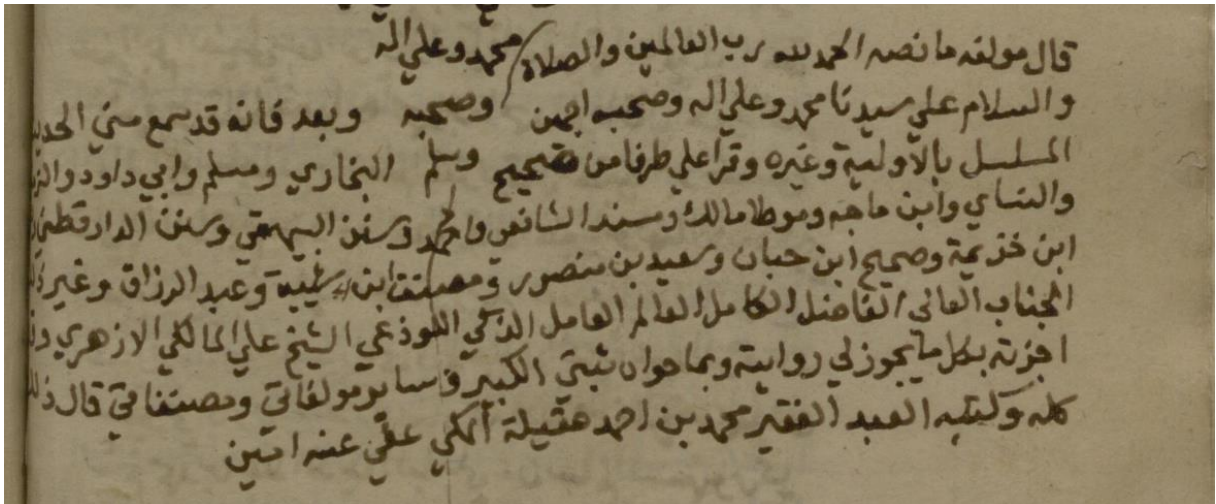 قال مولفه ما نصه الحمد لله رب العالمين والصلاة محمد وعلي اله
والسلام علي سيدنا محمد وعلي اله وصحبه اجمعين وصحبه وبعد فانه قد سمع مني الحديث
المسلسل بالاولية وغيره وقرا علي طرفا من صحيح وسلم البخاري ومسلم وابي داود والترمذي
والنساي وابن ماجه وموطا مالك ومسند الشافعي واحمد وسنن البيهقي وسنن الدارقطني
ابن خزيمة وصحيح ابن حبان وسعيد بن منصور ومصنف ابن شيبة وعبد الرزاق وغير ذلك
الجناب العالي الفاضل الكامل العالم العامل الذكي اللوذعي الشيخ علي المالكي الازهري
اجزته بكل ما يجوز لي روايته وبما حواه ثبتي الكبير وساير مولفاتي ومصنفاتي قال ذلك
كله وكتبه العبد الفقير محمد بن احمد عقيلة المكي عفي عنه امين